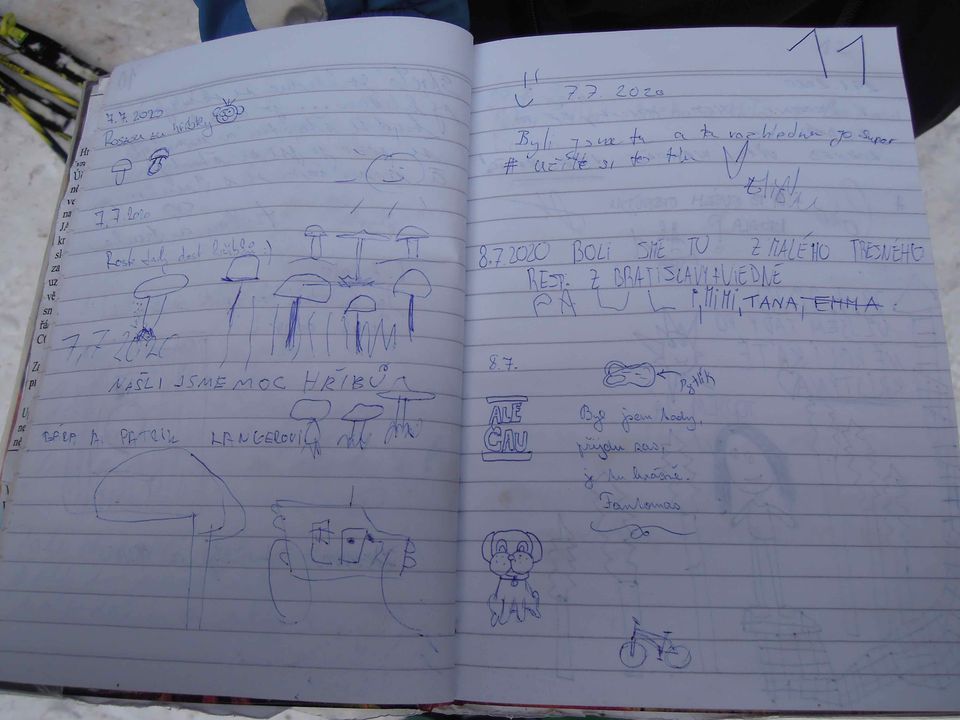 7.7.2020
hříbky
7.7 2020
Rostou tady dost hříbků :)
7,7 2020
NAŠLI JSME MOC HŘÍBŮ
BÁRA A PATRIK LANGEROVI
11
7.7. 2020
Byli jsme tu a ta rozhledna je super
# užijte si ten
8.7.2020 BOLI SME TU Z MALÉHO TRESNÉHO
RESP. Z BRATISLAVY+VIEDNE
MIMI, TANA, EMMA
8.7.
Pytlík
ALE
ČAU
Byl jsem tady,
přijdu zas,
je tu krásně.
Fantomas